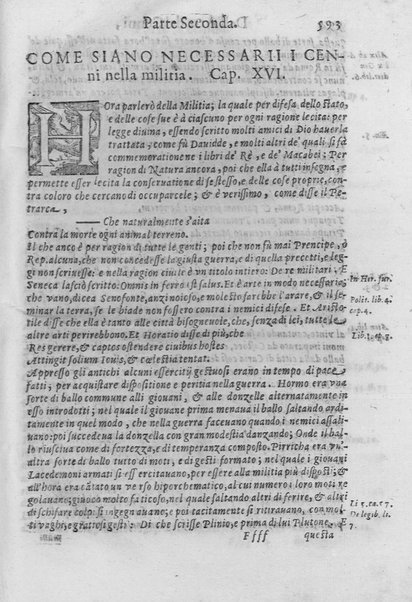 Parte Seconda. 593
COME SIANO NECESSARII I CEN-
ni nella militia. Cap. XVI.
HOra parlerò della Militia; la quale per difesa dello stato,
e delle cose sue è à ciascuno per ogni ragione lecita: per
legge diuina, essendo scritto molti amici di Dio hauerla
trattata, come fù Dauidde, e molti altri de' quali si fà
commemoratione ne i libri de' Rè, e de' Macabei; Per
ragion di Natura ancora, poi che ella à tutti insegna, e
permette esser lecita la conseruatione di se stesso, e delle cose proprie, con-
tra coloro che cercano di occuparcele; & è verissimo, come disse il Pe-
trarca,
—— Che naturalmente s'aita
Contra la morte ogni animal terreno.
Il che anco è per ragion di tutte le genti; poi che non fù mai Prencipe, ò
Rep. alcuna, che non concedesse la giusta guerra, di quella precetti, e leg-
gi non scriuesse: e nella ragion ciuile è vn titolo intiero: De re militari. E
Seneca lasciò scritto. Omnis in ferro est salus. Et è arte in modo necessaria,
che vano, dicea Senofonte, anzi noioso, e molesto sarebbe l'arare, & il se-
minar la terra, se le biade non fossero contra i nemici difese. Et Aristo-
tile disse che ella è tanto alle città bisogneuole, che, senza di lei, tutte le
altre arti perirebbono. Et Horatio disse di più, che
Res gerere, & captos ostendere ciuibus hostes
Attingit solium Iouis, & cœlestia tentat.
Appresso gli antichi alcuni essercitij gestuosi erano in tempo di pace
fatti; per acquistare dispositione e peritia nella guerra. Hormo era vna
sorte di ballo commune alli giouani, & alle donzelle alternatamente in
esso introdotti; nel quale il giouane prima menaua il ballo saltando ardi-
tamente in quel modo, che nella guerra faceuano quando i nemici assali-
uano: poi succedeua la donzella con gran modestia danzando; Onde il bal-
lo riusciua come di fortezza, e di temperanza composto. Pirricha era vn'
altra sorte di ballo tutto di moti, e di gesti formato; nel quale i giouani
Lacedemoni armati si essercitauano, per essere alla militia più disposti; &
all'hora era cantato un verso hiporchematico, al cui numero i loro moti re
golauano; gioco molto faticoso, nel quale saltando altri di ferire, & altri
di schifare colpi si ingegnauano; e poi tacitamente si ritirauano, con mo-
ti vaghi, e gratiosi gesti: Di che scrisse Plinio, e prima di lui Plutone. E
Ffff questa
In Her. fur.
Polit. lib. 4.
cap. 4.
Li. 7. ca. 57.
De legib. li.
7.